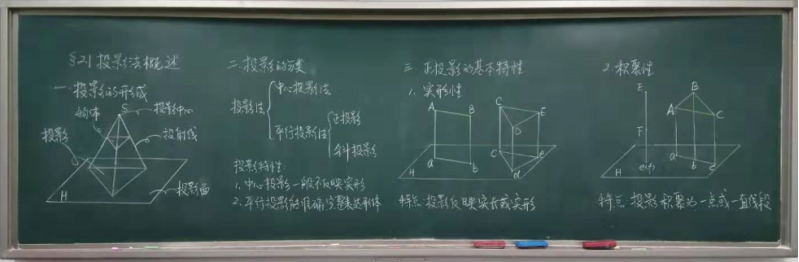 §2.1 投影法概述
一、投影的形成
S
投影中心
物体
投影
投射线
投影面
H
二、投影的分类
投影法
中心投影法
平行投影法
正投影
斜投影
投影特性:
1. 中心投影一般不反映实形
2. 平行投影能准确完整表达形体
三、正投影的基本特性
1. 实形性
A B
a b
C E
D
c e
d
H
特点:投影反映实长或实形
2. 积聚性
E
F
e(f)
B
A C
a b c
H
特点:投影积聚为一点或一直线段